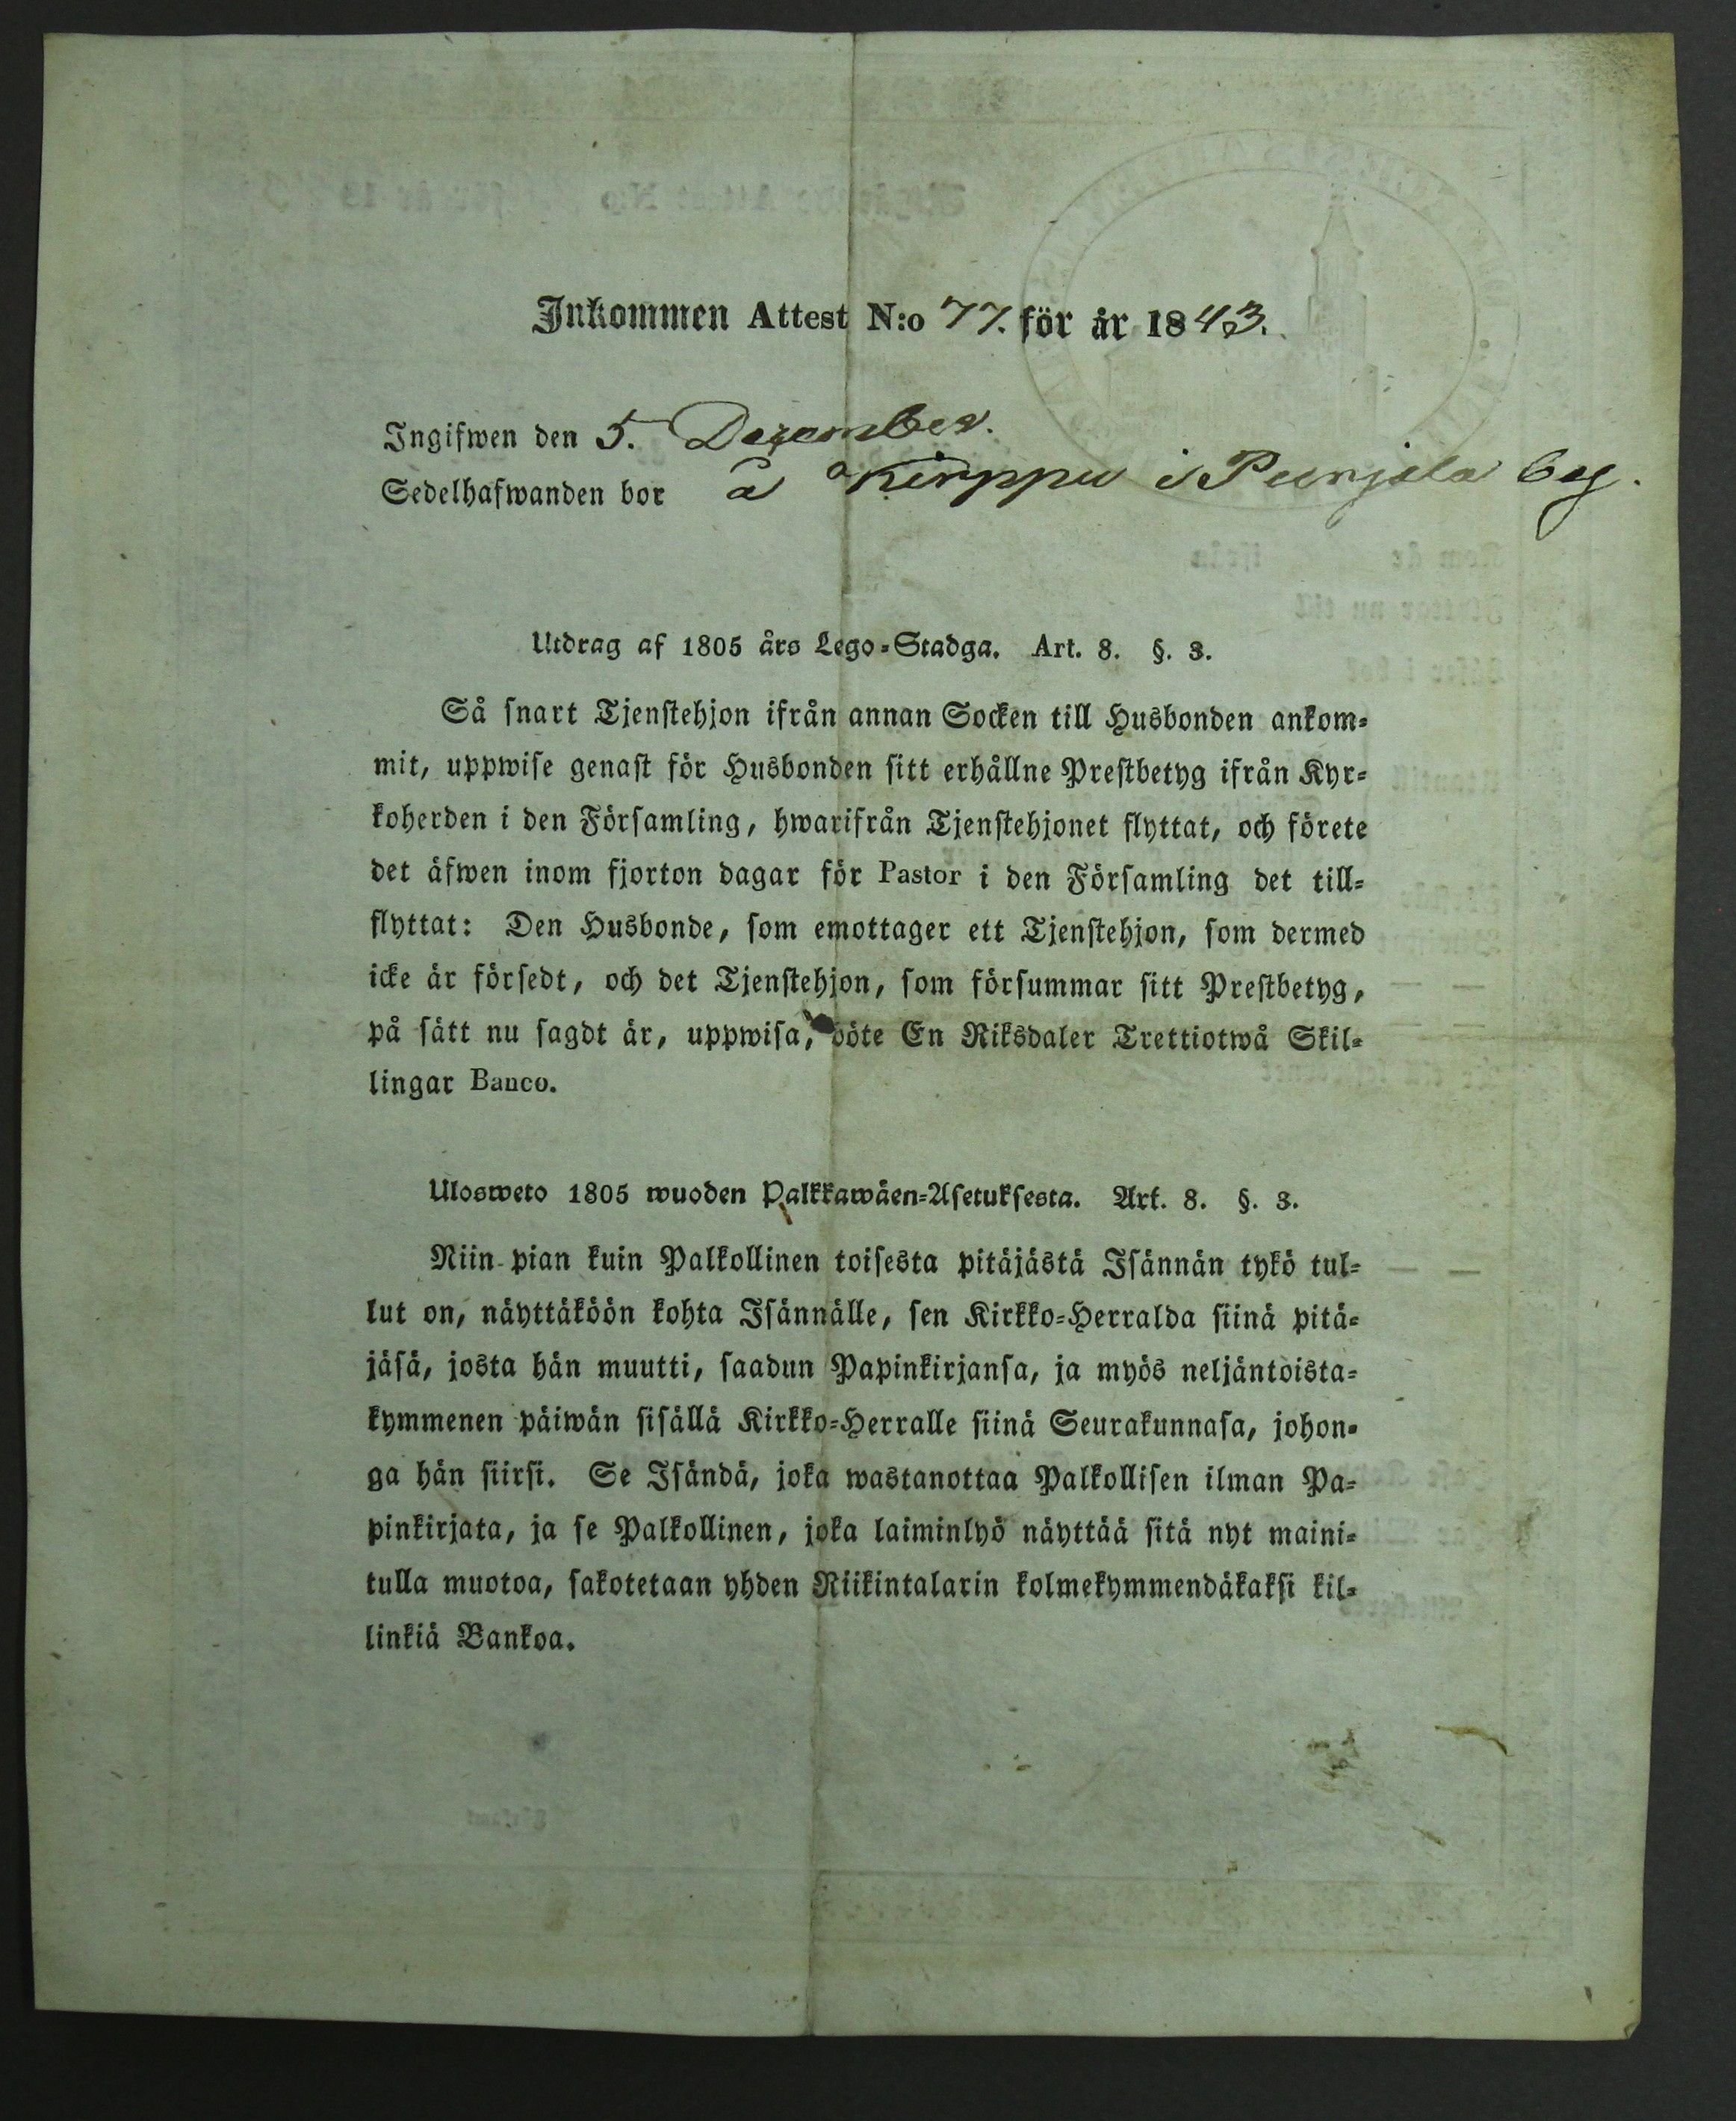 Inkommen Attest N:o 77. för år 1843.
Ingifwen den 5. December.
Sedelhafwanden bor å Kirppu i Punjola by.
Utdrag af 1805 års Lego-Stadga. Art. 8. §. 3.
Så snart Tjenstehjon ifrån annan Socken till Husbonden ankom-
mit, uppwise genast för Husbonden sitt erhållne Prestbetyg ifrån Kyr-
koherden i den Församling, hwarifrån Tjenstehjonet flyttat, och förete
det äfwen inom fjorton dagar för Pastor i den Församling det till-
flyttat: Den Husbonde, som emottager ett Tjenstehjon, som dermed
icke är försedt, och det Tjenstehjon, som försummar sitt Prestbetyg,
på sätt nu sagdt är, uppwisa, böte En Riksdaler Trettiotwå Skil-
lingar Banco.
Ulosweto 1805 wuoden Palkkawäen-Asetuksesta. Art. 8. §. 3.
Niin pian kuin Palkollinen toisesta pitäjästä Isännän tykö tul-
lut on, näyttäköön kohta Isännälle, sen Kirkko-Herralda siinä pitä-
jäsä, josta hän muutti, saadun Papinkirjansa, ja myös neljäntoista-
kymmenen päiwän sisällä Kirkko-Herralle siinä Seurakunnasa, johon-
ga hän siirsi. Se Isändä, joka wastanottaa Palkollisen ilman Pa-
pinkirjata, ja se Palkollinen, joka laiminlyö näyttää sitä nyt maini-
tulla muotoa, sakotetaan yhden Riikintalarin kolmekymmendäkaksi kil-
linkiä Bankoa.